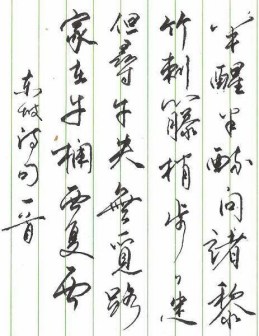 半醒半醉問諸黎
竹刺籐梢步々迷
但尋牛矢無覓路
家在牛欄西复西
东坡诗句一首